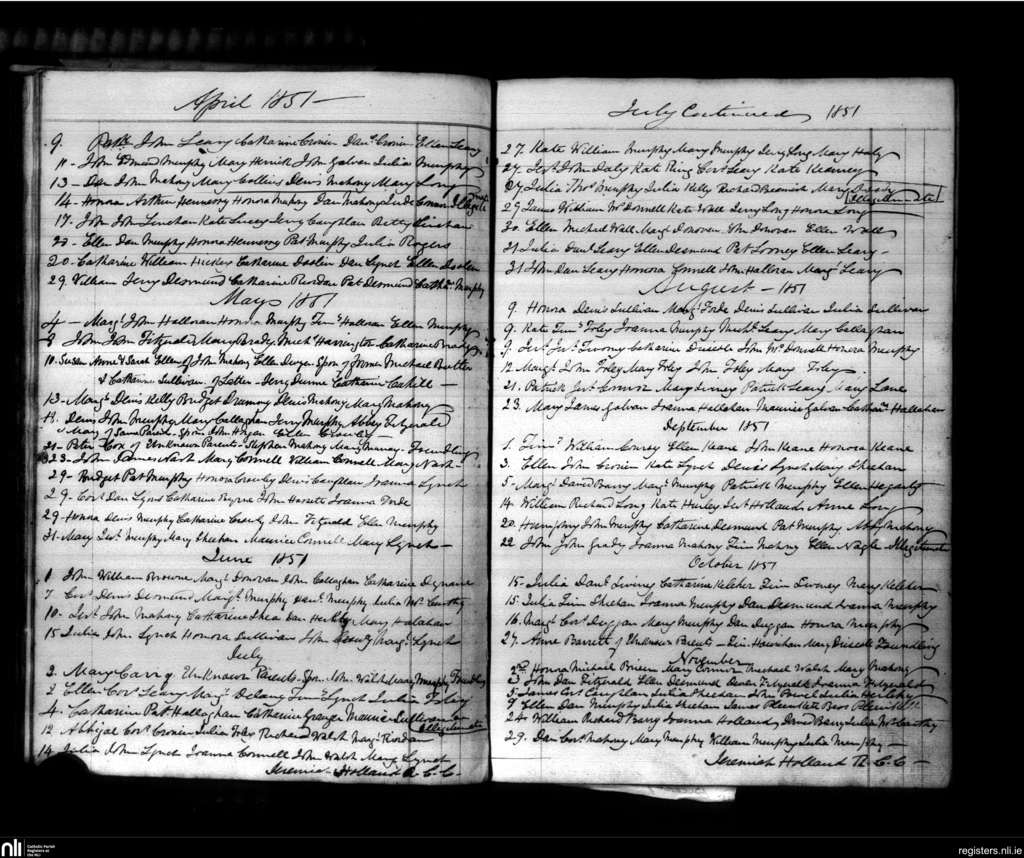 April 1851 —
9. Patk John Leary Catharine Cronin Danl Cronin Ellen Leary
11 - John Edmond Murphy Mary Herrick John Galvan Julia Murphy
13 - Dan John Mahony Mary Collins Denis Mahony Mary Long
14 - Honora Arthur Hennessy Honora Mahony Dan Mahony
17. John John Linehan Kate Lucey Jerry Coughlan Betty Linehan
20 - Ellen Dan Murphy Honora Hennessy Pat Murphy Julia Rogers
20. Catharine William Hickey Catharine Doolin Dan Lynch Ellen Doolin
29. William Jerry Desmond Catharine Riordan Pat Desmond Cathe Murphy
May 1851
4 - Margt John Halloran Honora Murphy Timy Halloran Ellen Murphy
8 John John Fitzgerald Mary Brady Michl Harrington Catharine Brady
10. Susan Anne & Sarah Ellen of John Mahony Ellen Dwyer Spon of former Michael Butler
& Catharine Sullivan of Latter - Jerry Dunne Catharine Cahill —
13 - Margt Denis Kelly Bridget Drummy Denis Mahony Mary Mahony
18. Denis John Murphy Mary Callaghan Jerry Murphy Abbey Fitzgerald
Mary of Same Parents. Spon John Hogan Ellen Crowley —
21 - Peter Cox of Unknown Parents - Stephen Mahony Mary Murray - Foundling
23 - John James Nash Mary Connell William Connell Mary Nash -
29 - Bridget Pat Murphy Honora Crowley Denis Coughlan Joanna Lynch
29. Cors Dan Lyons Catharine Byrne John Joanna Forde
29 - Honora Denis Murphy Catharine John Fitzgerald Ellen Murphy
31 - Mary Jerh Murphy Mary Sheehan Maurice Connell Mary Lynch —
June 1851
1 John William Browne Margt Donovan John Callaghan Catharine
7 Cors Denis Desmond Margt Murphy Murphy Julia McCarthy
10 - Jerh John Mahony Catharine Shea Dan Herlihy Mary Halahan
15 Julia John Lynch Honora Sullivan John Margt Lynch
July
2. Mary Carrig Unknown Parents. Spon. John Walsh Joan Murphy Foundling
2 Ellen Cors Leary Margt Delany Timy Lynch Julia Foley
4. Catharine Pat Hallaghan Catharine Grange Maurice Sullivan
12 Abbigal Cors Cronin Julia Foley Richard Walsh Margt Riordan Illegitimate
14 Julia John Lynch Joanna Connell John Walsh Mary Lynch
Jeremiah Holland R. C. C —
July Continued 1851
27. Kate William Murphy Mary Murphy Jerry Long Mary Healy
27. Jerh John Daly Kate Ring Cors Leary Kate Kearney
27 Julia Thos Murphy Julia Kelly Richard Beamish Mary
Illegitimate
29 James William McDonnell Kate Wall Jerry Long Honora Long
30. Ellen Michael Wall Margt Donovan Donovan Ellen Wall
31 Julia Danl Leary Ellen Desmond Pat Looney Ellen Leary -
31 John Dan Leary Honora Connell John Halloran Margt Leary
August - 1851
9. Honora Denis Sullivan Margt Forde Denis Sullivan Julia Sullivan
9. Kate Timy Foley Joanna Murphy Michl Leary Mary Callaghan
9. Jerh Twomy Catharine Driscole John McDonnell Honora Murphy
12 Margt John Foley May Foley John Foley Mary Foley
21. Patrick Jerh Connor Mary Patrick Leary Mary Lane
23. Mary James Galvan Joanna Hallahan Maurice Galvan Catharne Hallahan
September 1851
1. Timy William Ellen Keane John Keane Honora Keane
3. Ellen John Cronin Kate Lynch Denis Lynch Mary Sheehan
5 - Margt David Barry Margt Murphy Patrick Murphy Ellen Hegarty
14. William Richard Long Kate Hurley Jerh Holland Anne Long
20. Humphry John Murphy Catharine Desmond Pat Murphy Abby Mahony
22. John John Grady Joanna Mahony Tim Mahony Ellen Nagle Illegitimate
October 1851
15 - Julia Danl Catharine Keleher Tim Mary Keleher
15. Julia Tim Sheehan Joanna Murphy Dan Desmond Joanna Murphy
16. Margt Cors Duggan Mary Murphy Dan Duggan Honora Murphy
27. Anne Barrett of Unknown Parents - Tim Mary Driscole Foundling
November
2nd Honora Michael Brien Mary Connor Michael Walsh Mary Mahony
3 John Dan Fitzgerald Ellen Desmond Fitzgerald Joanna Fitzgerald
5 James Cors Coughlan Julia Sheehan John Julia Herlihy
9 Ellen Dan Murphy Julia Sheehan James Plunkett
24 William Richard Barry Joanna Holland David Barry Julia McCarthy
29. Dan Cors Mahony Mary Murphy William Murphy Julia Murphy —
Jeremiah Holland R. C. C —
nli Catholic Parish Registers at the NLI
registers.nli.ie